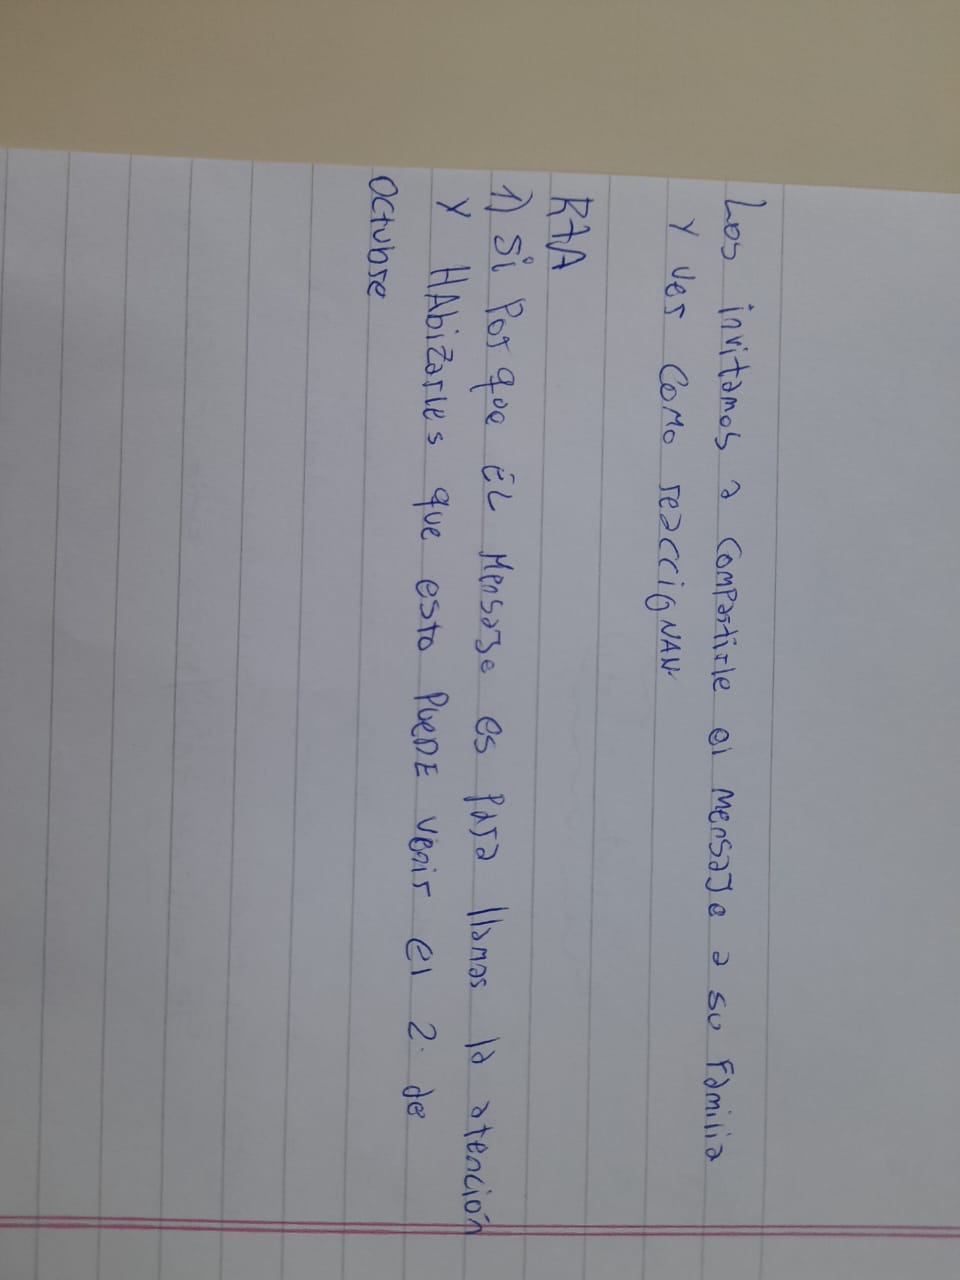 Los invitamos a compartirle el mensaje a su Familia
Y ver como reaccionan
RTA
1) Si Por que EL Mensaje es para llamar la atención
Y HAbizarles que esto PUEDE venir el 2 de
Octubre